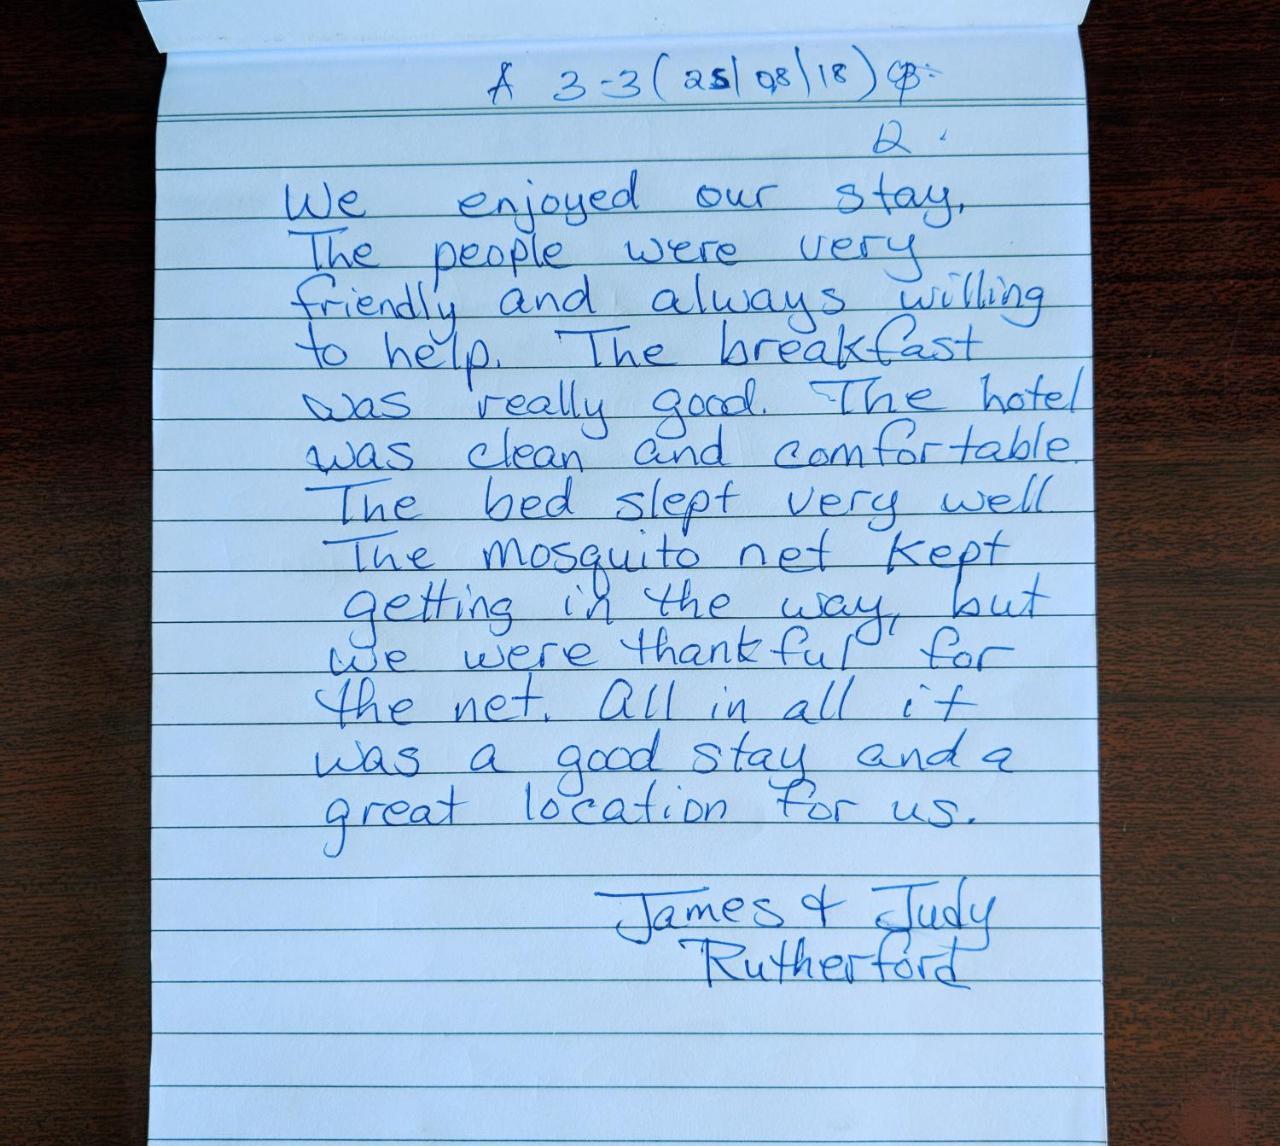 A 3-3 (25/08/18)
2.
We enjoyed our stay.
The people were very
friendly and always willing
to help. The breakfast
was really good. The hotel
was clean and comfortable.
The bed slept very well.
The mosquito net kept
getting in the way, but
we were thankful for
the net. All in all it
was a good stay and a
great location for us.
James & Judy
Rutherford